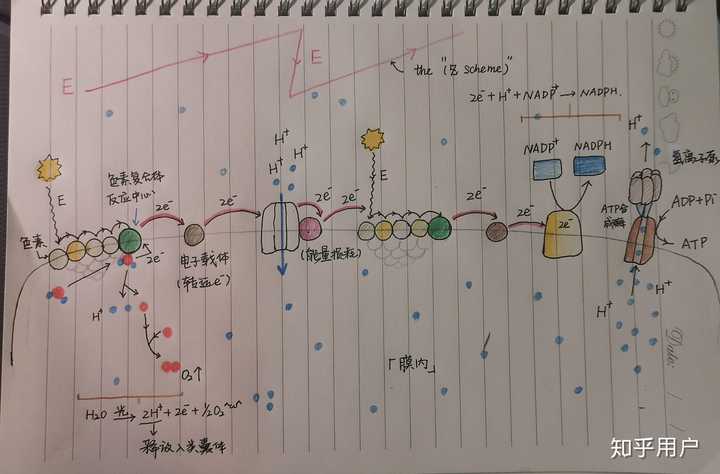 E
E
the "(Z scheme)"
2e⁻ + H⁺ + NADP⁺ → NADPH.
H⁺
H⁺
H⁺
E
色素复合体
反应中心
2e⁻
2e⁻
2e⁻
2e⁻
E
2e⁻
2e⁻
NADP⁺
NADPH
2e⁻
氢离子泵
ATP合
成酶
ADP+Pi
ATP
色素
2e⁻
电子载体
(转运e⁻)
(能量损耗)
H⁺
H⁺
H⁺
O₂↑
「膜内」
H₂O 光→ 2H⁺ + 2e⁻ + ½O₂
释放入类囊体
Date:
知乎用户